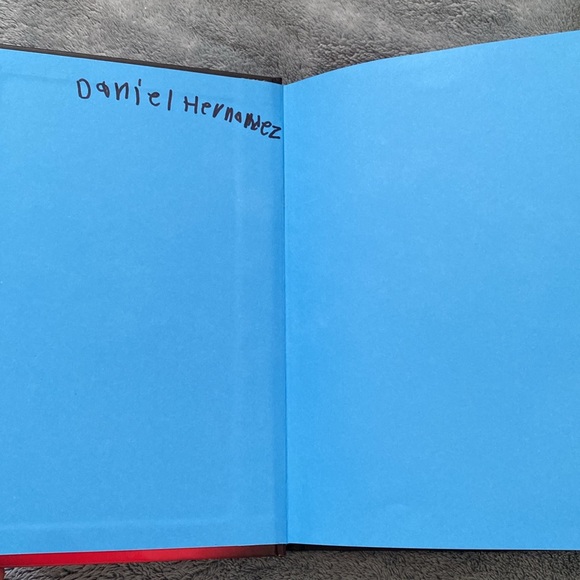 Daniel Hernandez